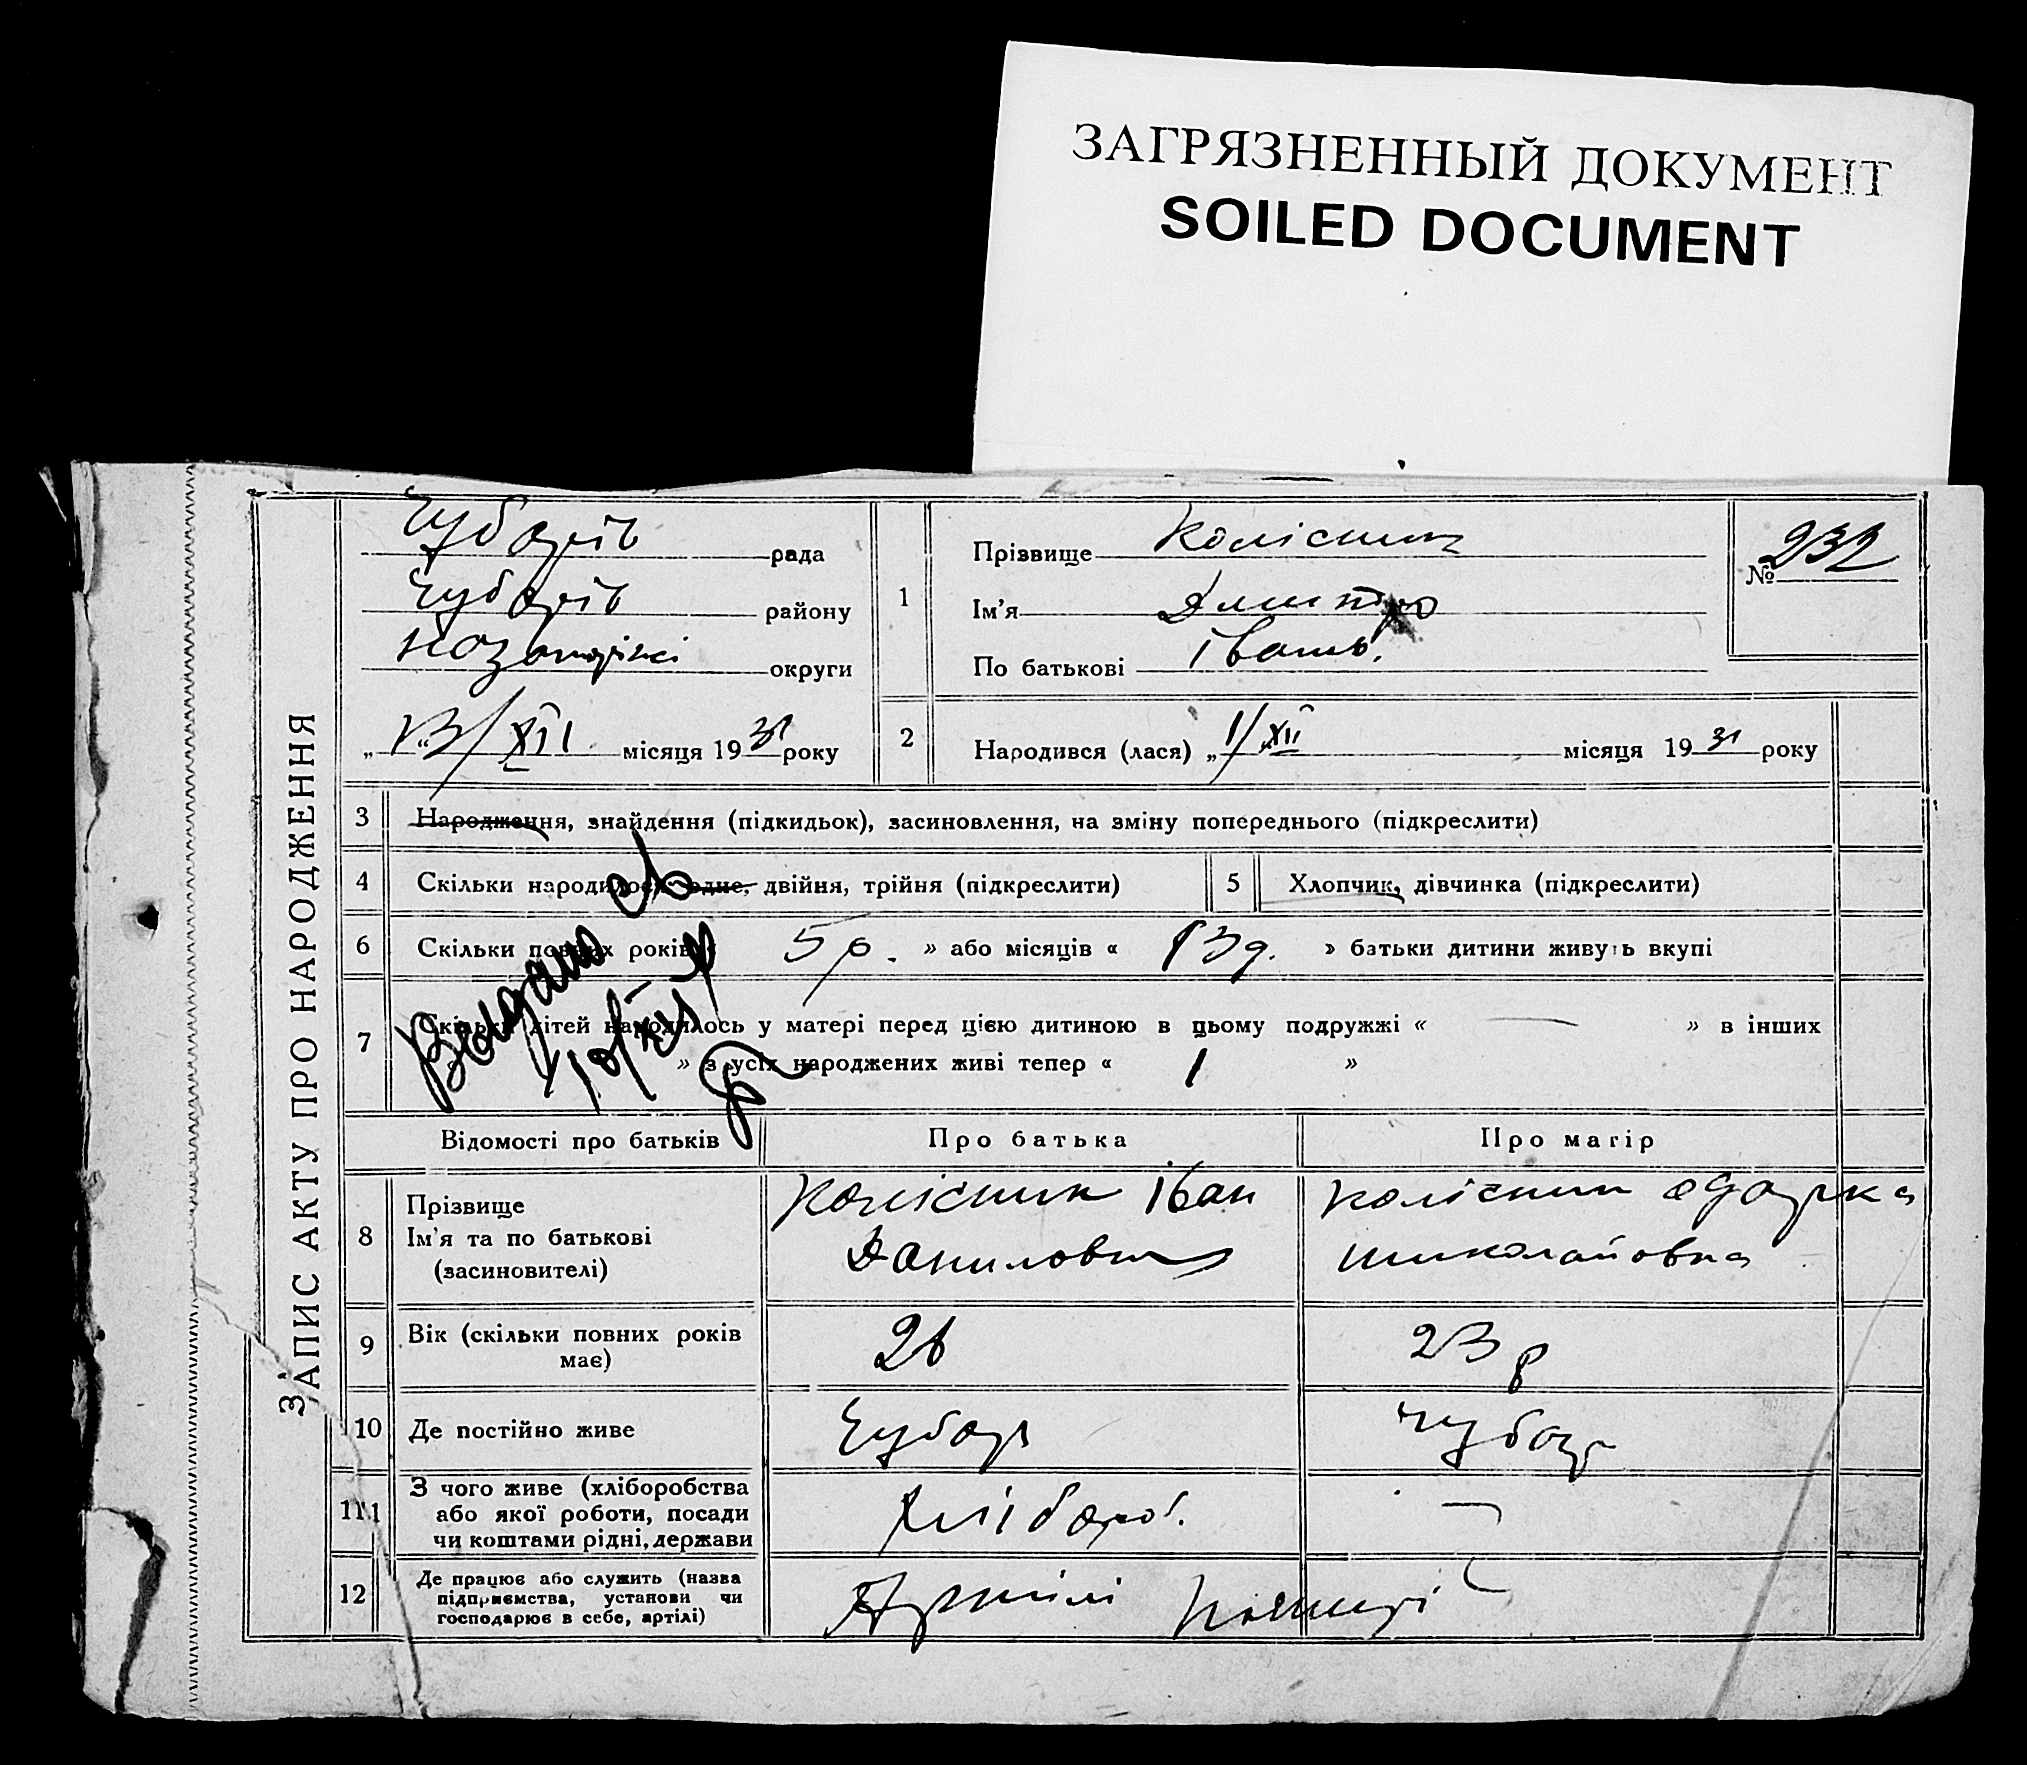 ЗАГРЯЗНЕННЫЙ ДОКУМЕНТ
SOILED DOCUMENT
ЗАПИС АКТУ ПРО НАРОДЖЕННЯ
Чубарів рада
Чубарів району
округи
„ 13/XII місяця 1931 року
1
Прізвище Колісник
Ім'я Дмитро
По батькові Іванов.
№ 232
2
Народився (лася) „ 1/XII місяця 1931 року
3 Народження, знайдення (підкидьок), засиновлення, на зміну попереднього (підкреслити)
4 Скільки народилося: одне, двійня, трійня (підкреслити)
5 Хлопчик, дівчинка (підкреслити)
6 Скільки повних років « 5 р. » або місяців « » батьки дитини живуть вкупі
7 Скільки дітей народилось у матері перед цією дитиною в цьому подружжі « — » в інших
« » з усіх народжених живі тепер « 1 »
Видано
Відомості про батьків
Про батька
Про матір
8 Прізвище
Ім'я та по батькові
(засиновителі)
Колісник Іван
Данилович
Колісник Одарка
Николайовна
9 Вік (скільки повних років
має)
26
23 р
10 Де постійно живе
Чубар
Чубар
11 З чого живе (хліборобства
або якої роботи, посади
чи коштами рідні, держави
Хлібороб.
—
12 Де працює або служить (назва
підприємства, установи чи
господарює в себе, артілі)
Артілі